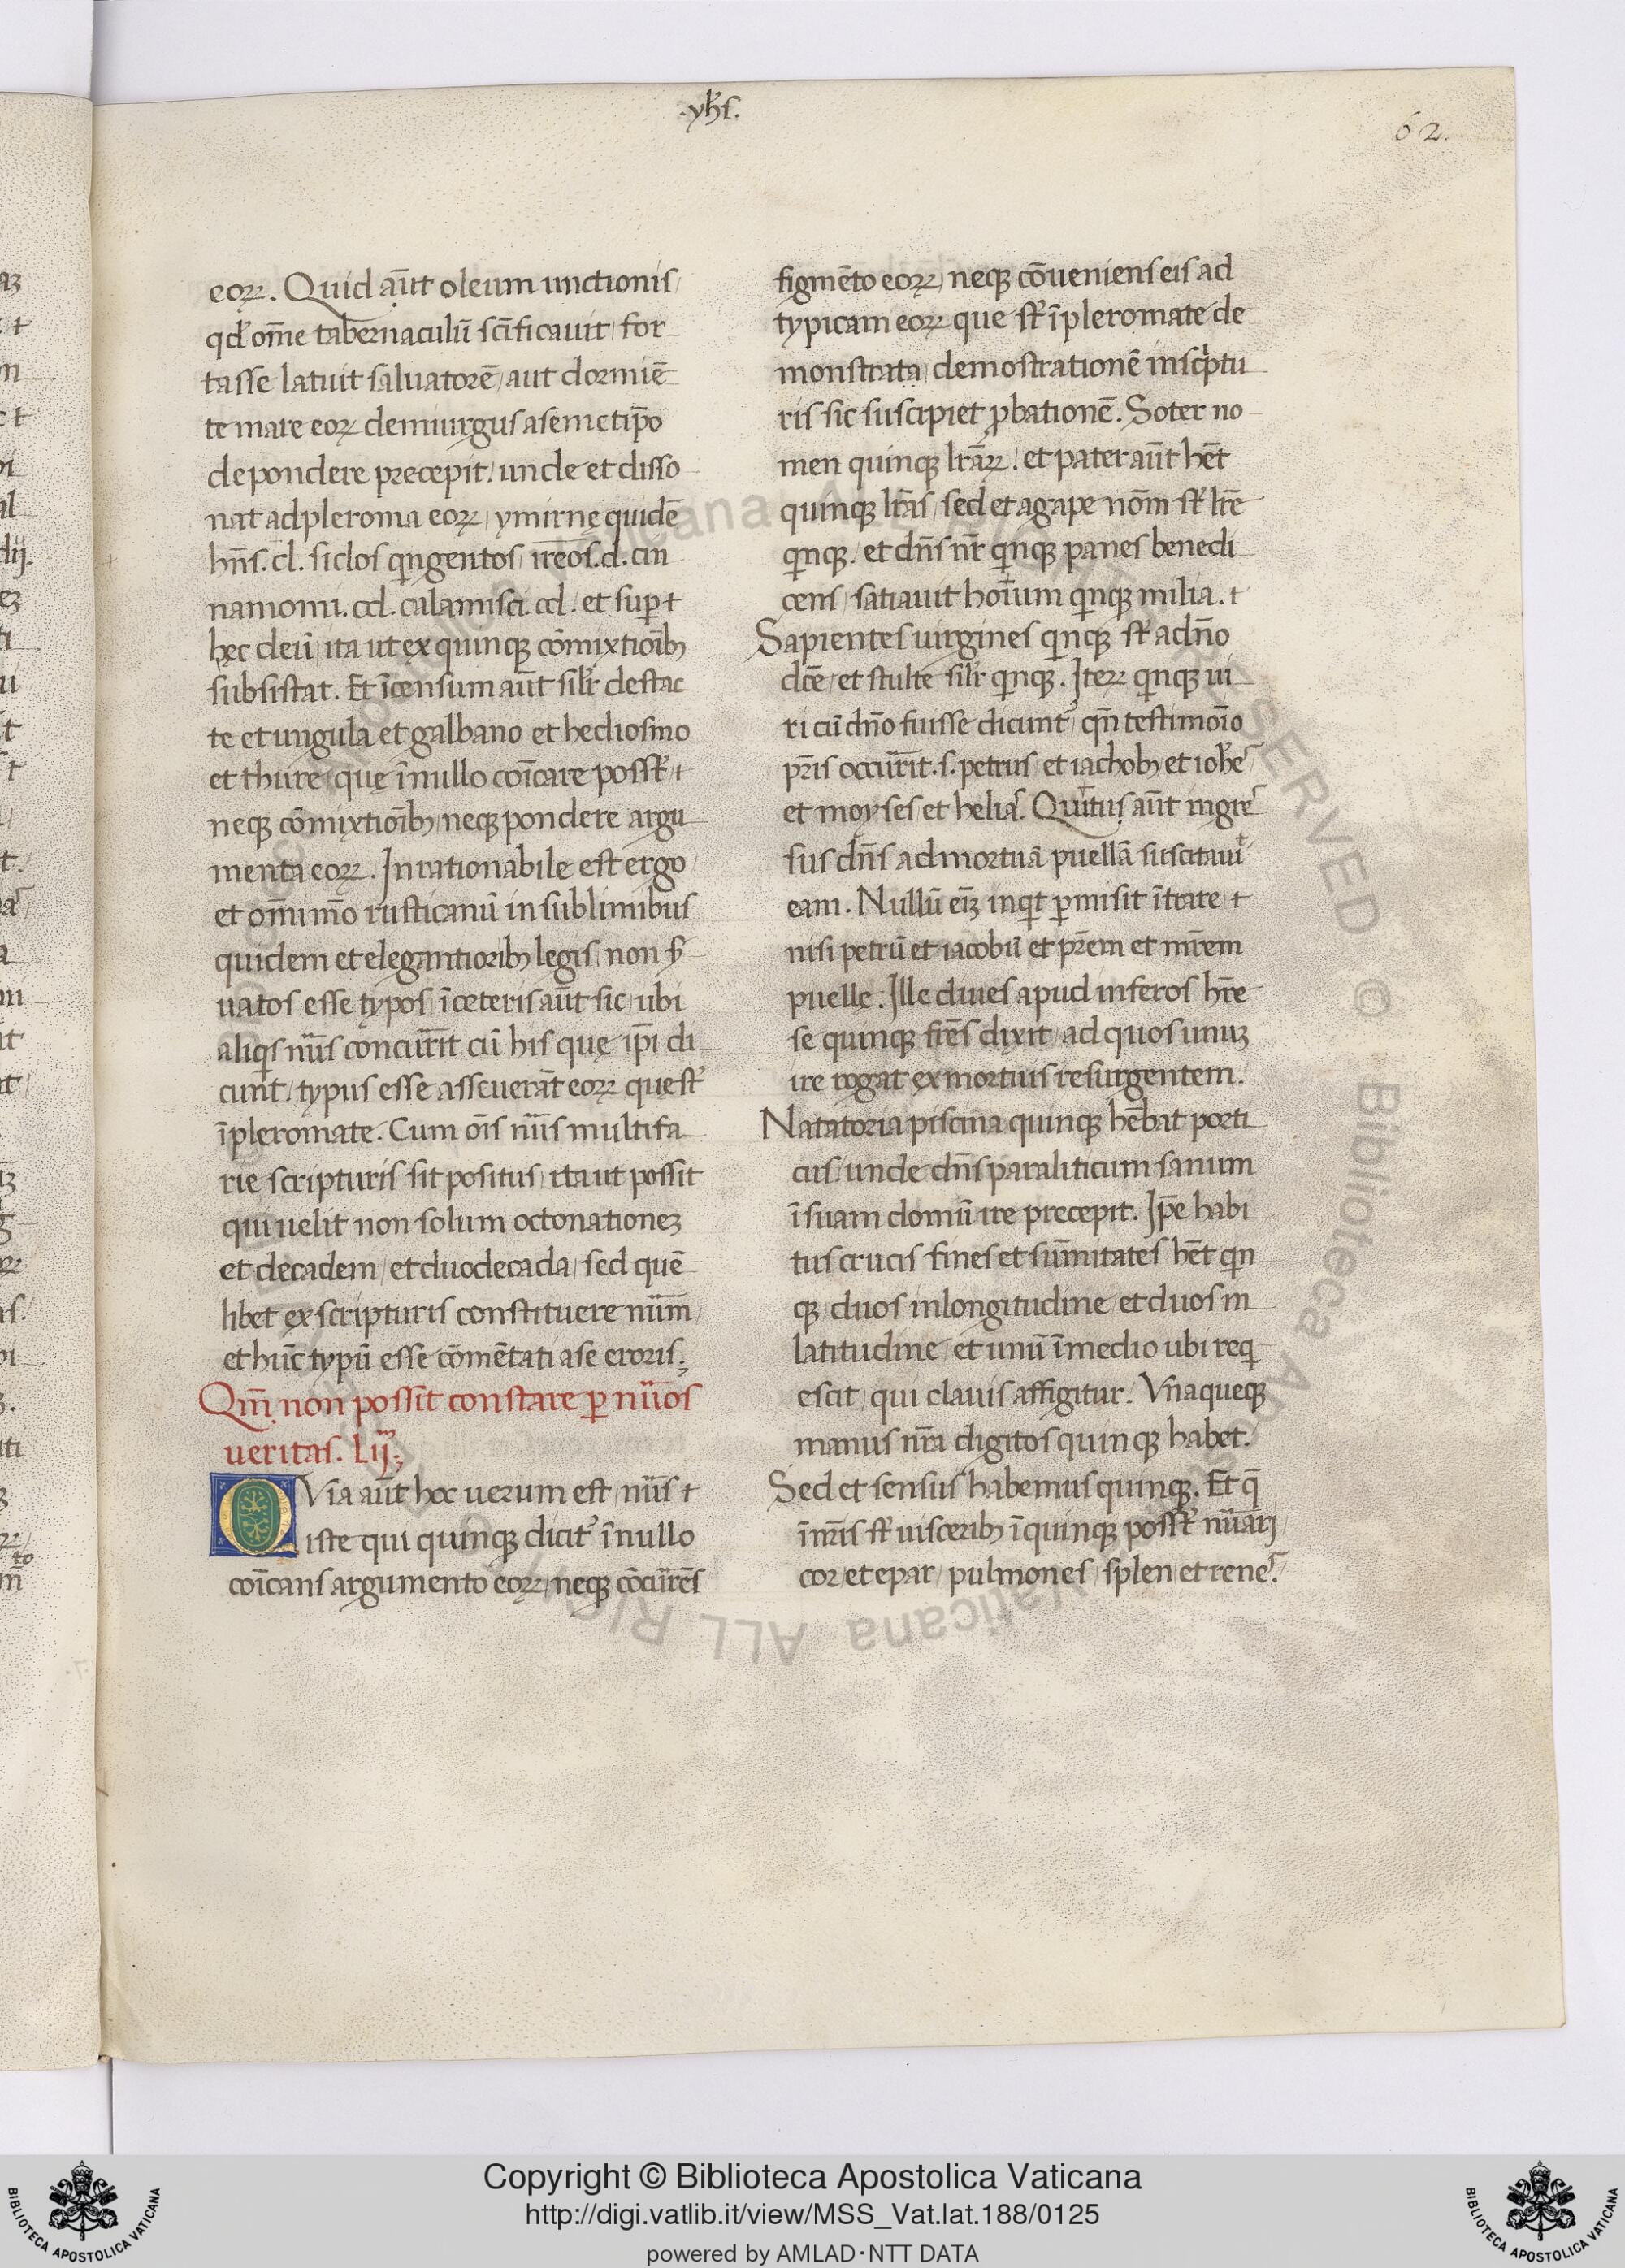 .yhs.
62.
eoꝝ. Quid aūt oleum unctionis/
qd̛ om̄e tabernaculū scīficauit/ for
tasse latuit saluatorē/ aut dormiē
te mare eoꝝ demiurgus asemetip̄o
depondere precepit/ unde et disso
nat adpleroma eoꝝ/ ymirnę quidē
hn̄s .cl. siclos qͥngentos/ ireos .d. cin
namomi .ccl. calamisci .ccl. et suꝑ t
hęc oleū/ ita ut ex quinqꝫ cōmixtioībꝫ
subsistat. Et īcensum aūt silr̄ destac
te et ungula et galbano et hediosmo
et thure/ quę īnullo coīcare posst̄/ t
neqꝫ cōmixtioībꝫ/ neqꝫ pondere argu
menta eoꝝ. Inrationabile est ergo/
et om̄imo rusticanū in sublimibus
quidem et elegantioribꝫ legis/ non s̄
uatos esse typos/ īceteris aūt sic/ ubi
aliqͥs nūs concurr̄it cū his quę ip̄i di
cunt/ typus esse asseuerāt eoꝝ que st̄
īpleromate. Cum oīs nūs multifa
rie scripturis sit positus/ ita ut possit
qui uelit non solum octonationeꝫ
et decadem/ et duodecada/ sed quē
libet ex scripturis constituere num̄/
et hūc typū esse cōmētati ase eroris;
Qm̄ non possīt constare ꝑ nūos
ueritas. Lij;
QVia aūt hoc uerum est/ nūs t
iste qui quinqꝫ dicit᷒ īnullo
coīcans argumento eoꝝ/ neqꝫ cōcurrēs
figmēto eoꝝ/ neqꝫ cōueniens eis ad
typicam eoꝝ que st̄ īpleromate de
monstrata demostrationē inscͥptu
ris sic suscipiet ꝓbationē. Soter no
men quinqꝫ lr̄aꝝ/ et pater aūt hēt
quinqꝫ lr̄as/ sed et agape nōm st̄ lr̄e
qͥnqꝫ. et dn̄s nr̄ qͥnqꝫ panes benedi
cens/ satiauit hoīum qͥnqꝫ milia. t
Sapientes uirgines qͥnqꝫ st̄ adn̄o
dc̄e/ et stulte silr̄ qͥnqꝫ. Iteꝝ qͥnqꝫ ui
ri cū dn̄o fuisse dicunt᷒/ qn̄ testimoīo
pr̄is occurr̄it .s. petrus/ et iachobꝫ et ioh̄es
et moyses et helias. Quītus aūt ingres
sus dn̄s admortuā puellā suscitauit
eam. Nullū eīꝫ inqͥt ꝑmisit ītrare/ t
nisi petrū et iacobū et pr̄em et mr̄em
puelle. Ille diues apud inferos hr̄e
se quinqꝫ fr̄es dixit/ ad quos unuꝫ
ire rogat ex mortuis resurgentem.
Natatoria piscina quinqꝫ hēbat porti
cus/ unde dn̄s paraliticum sanum
ī suam domū ire precepit. Ip̄e habi
tus crucis fines et sūmitates hēt qͥn
qꝫ/ duos inlongitudine/ et duos in
latitudine/ et unū īmedio ubi reqͥ
escit/ qui clauis affigitur. Vnaqueqꝫ
manus nr̄a digitos quinqꝫ habet.
Sed et sensus habemus quinqꝫ. Et q̄
īnr̄is st̄ uisceribꝫ īquinqꝫ posst̄ nūari/
cor/ et epar/ pulmones/ splen/ et renes.
Copyright © Biblioteca Apostolica Vaticana
http://digi.vatlib.it/view/MSS_Vat.lat.188/0125
powered by AMLAD·NTT DATA